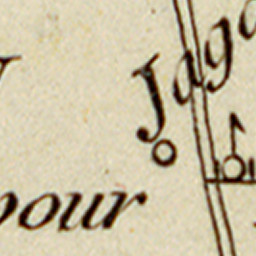 Jaga
pour